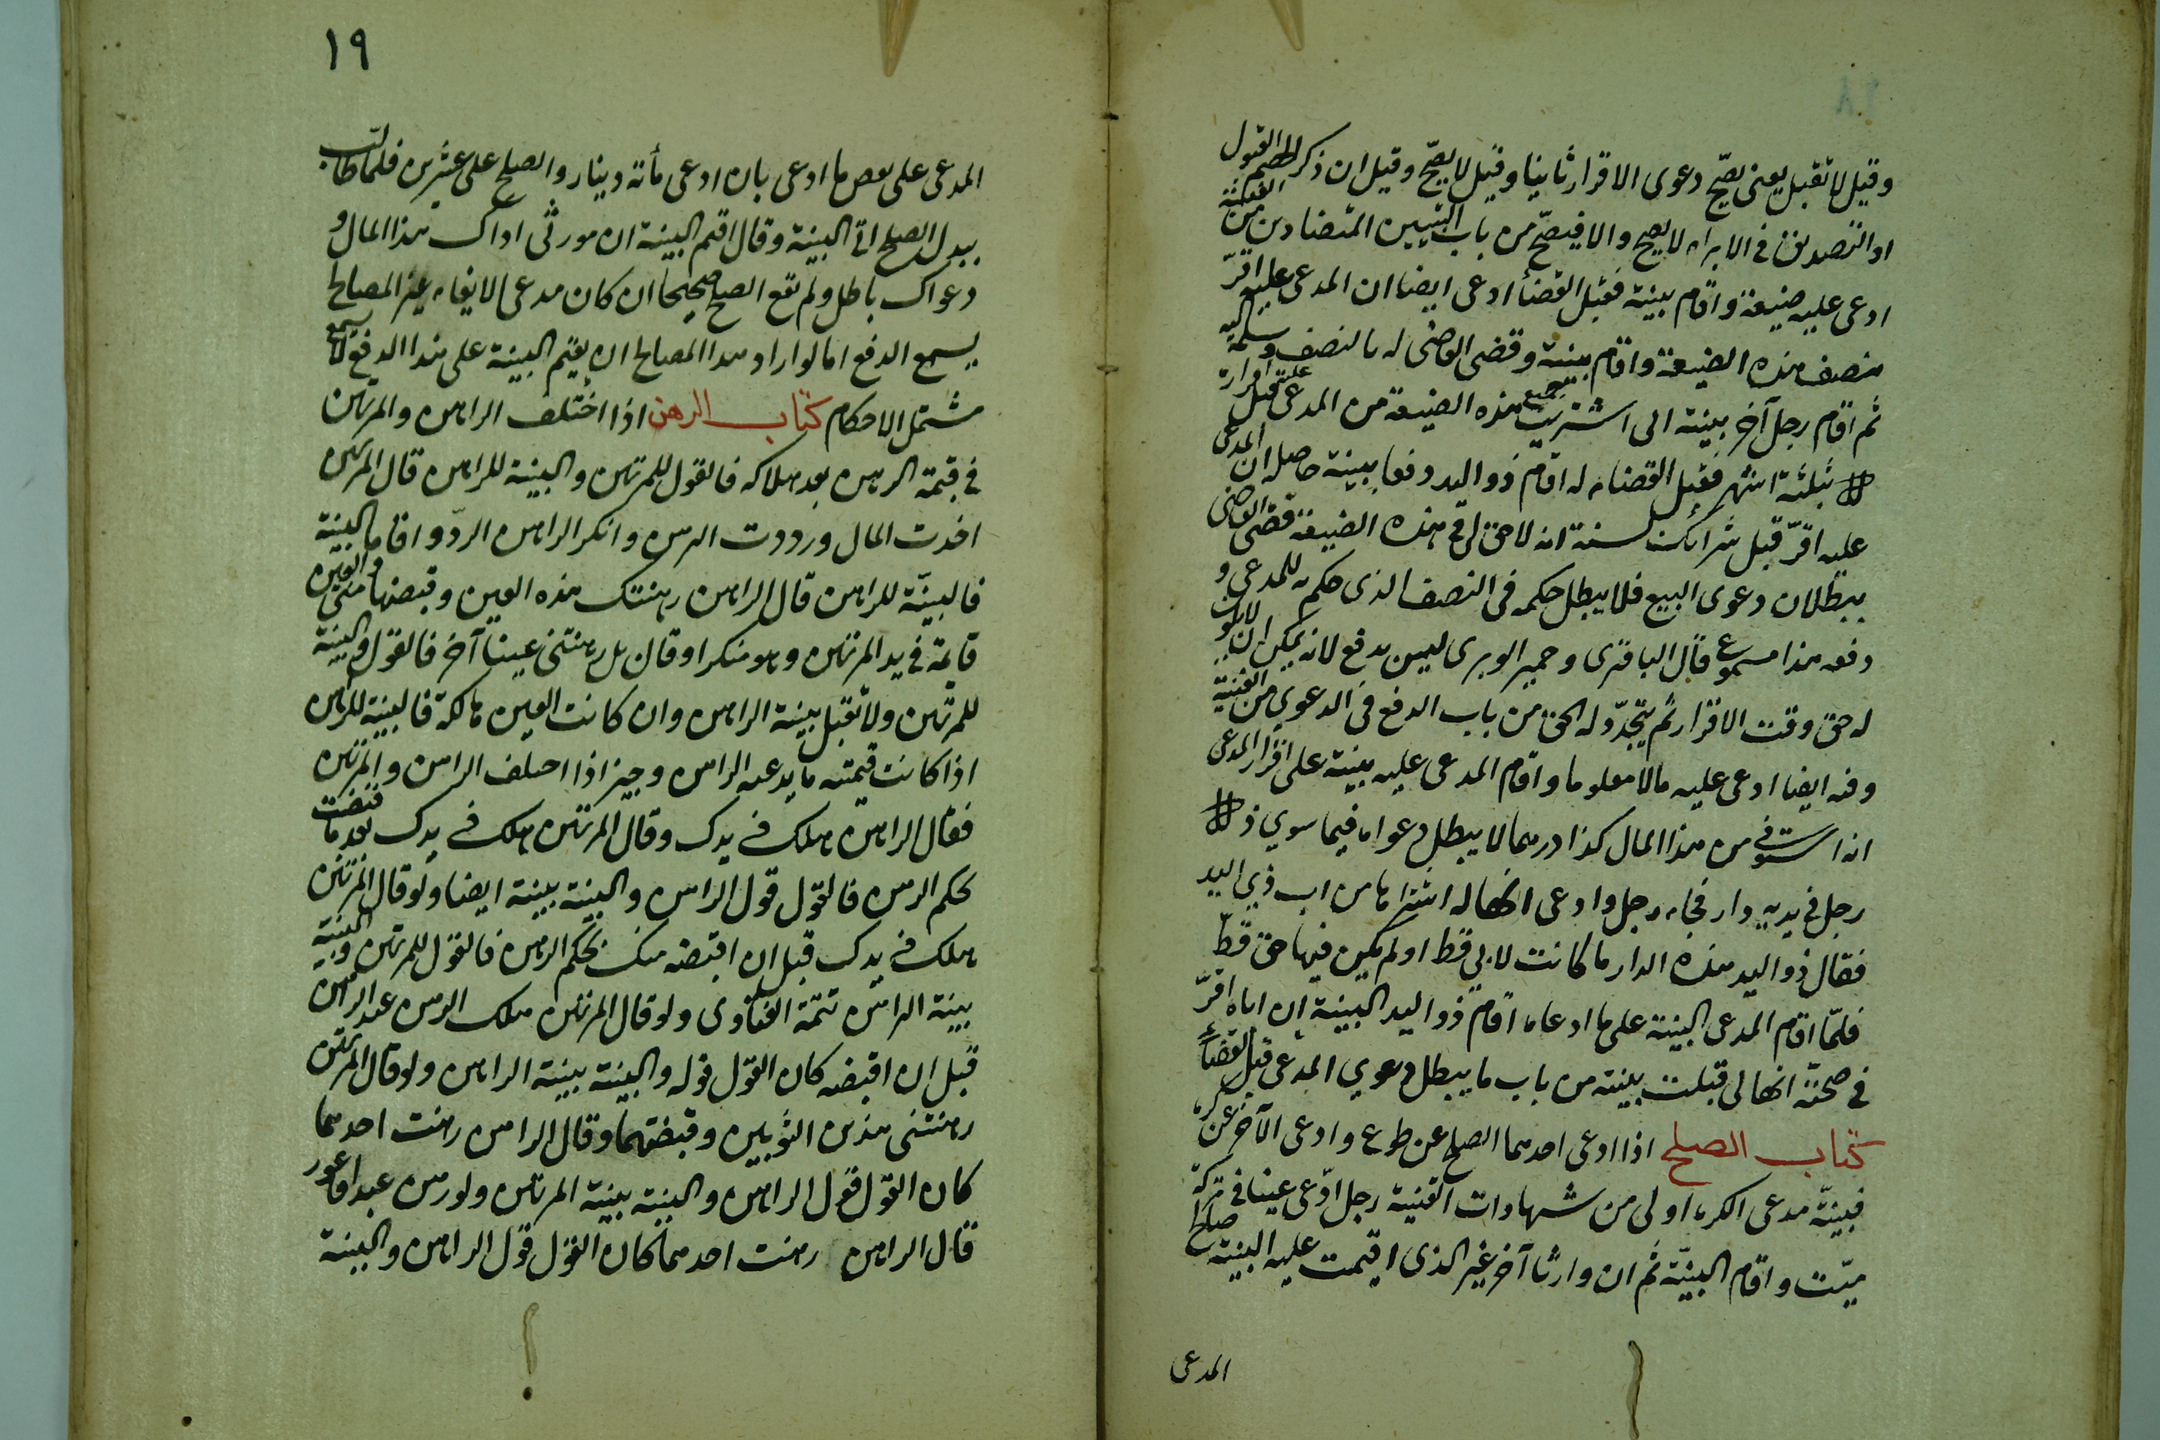 وقيل لا تقبل يعنى يصحّ دعوى الاقرار ثانيا وقيل لا يصحّ وقيل ان ذكر القبول
او التصديق فى الابراء لا يصح والا فيصحّ من باب البينتين المتضادين من القنية
ادعى عليه ضيعة واقام بينة فقبل القضأ ادعى ايضا ان المدعى عليه اقرّ
منصف هذه الضيعة واقام بينة وقضى القاضى له بالنصف وسلمه اليه
ثم اقام رجل آخر بينة انى اشتريت جميع هذه الضيعة من المدعى عليه قبل اقراره
بثلثة اشهر فقبل القضاء له اقام ذو اليد دفعا بينة حاصله ان المدعى
عليه اقرّ قبل شرائك لسنة انه لا حق لى فى هذه الضيعة قضى القاضى
ببطلان دعوى البيع فلا يبطل حكمه فى النصف الذى حكم به للمدعى و
دفعه هذا مسموع قال الباقرى وحمير الوبرى ليس بدفع لانه يمكن ان لا يكون
له حق وقت الاقرار ثم يتجدّد له الحق من باب الدفع فى الدعوي من القنية
وفيه ايضا ادعى عليه مالا معلوما واقام المدعى عليه بينة على اقرار المدعى
انه استوفى من هذا المال كذا درهما لا يبطل دعواه فيما سوي ذ
رجل فى يديه دار فجاء رجل وادعى انها له اشتراها من اب ذي اليد
فقال ذو اليد هذه الدار ما كانت لابي قط او لم يكن فيها حق قطّ
فلمّا اقام المدعى البينة على ما ادعاه اقام ذو اليد البينة ان اباه اقرّ
فى صحّته انها لى قبلت بينته من باب ما يبطل دعوي المدعى قبل القضاء
كتاب الصلح اذا ادعى احدهما الصلح عن طوع وادعى الآخر عن كره
فبينّة مدعى الكره اولى من شهادات القنية رجل ادّعى عينا فى تركة
ميّت واقام البينّة ثم ان وارثا آخر غير الذى اقيمت عليه البينة صالح
المدعى
١٩
المدعى على بعض ما ادعى بان ادعى مأئة دينار والصلح على عشرين فلما طالب
ببدل الصلح اتى البينة وقال اقيم البينة ان مورثى اداك هذا المال و
دعواك باطل ولم تقع الصلح صحيحا ان كان مدعى الايفاء غير المصالح
يسمع الدفع اما لو اراد هذا المصالح ان يقيم البينة على هذا الدفع لا يسمع
مشتمل الاحكام كتاب الرهن اذا اختلف الراهن والمرتهن
فى قيمة الرهن بعد هلاكه فالقول للمرتهن والبينة للراهن قال المرتهن
اخذت المال ورددت الرهن وانكر الراهن الردّ واقاما البينة
فالبينّة للراهن قال الراهن رهنتك هذه العين وقبضتها منى والعين
قائمة فى يد المرتهن وهو منكر او قال بل رهنتنى عينا آخر فالقول والبينة
للمرتهن ولا تقبل بينة الراهن وان كانت العين هالكة فالبينة للراهن
اذا كانت قيمته ما يدعيه الراهن وجيز اذا اختلف الراهن والمرتهن
فقال الراهن هلك فى يدك وقال المرتهن هلك فى يدك بعد ما قبضت
بحكم الرهن فالقول قول الراهن والبينة بينة ايضا ولو قال المرتهن
هلك فى يدك قبل ان اقبضه منك بحكم الرهن فالقول للمرتهن والبينة
بينة الراهن تتمة الفتاوى ولو قال المرتهن هلك الرهن عند الراهن
قبل ان اقبضه كان القول قوله والبينة بينة الراهن ولو قال المرتهن
رهنتنى هذين الثوبين وقبضتهما وقال الراهن رهنت احدهما
كان القول قول الراهن والبينة بينة المرتهن ولو رهن عبدا فاعور
قال الراهن رهنت احدهما كان القول قول الراهن والبينة